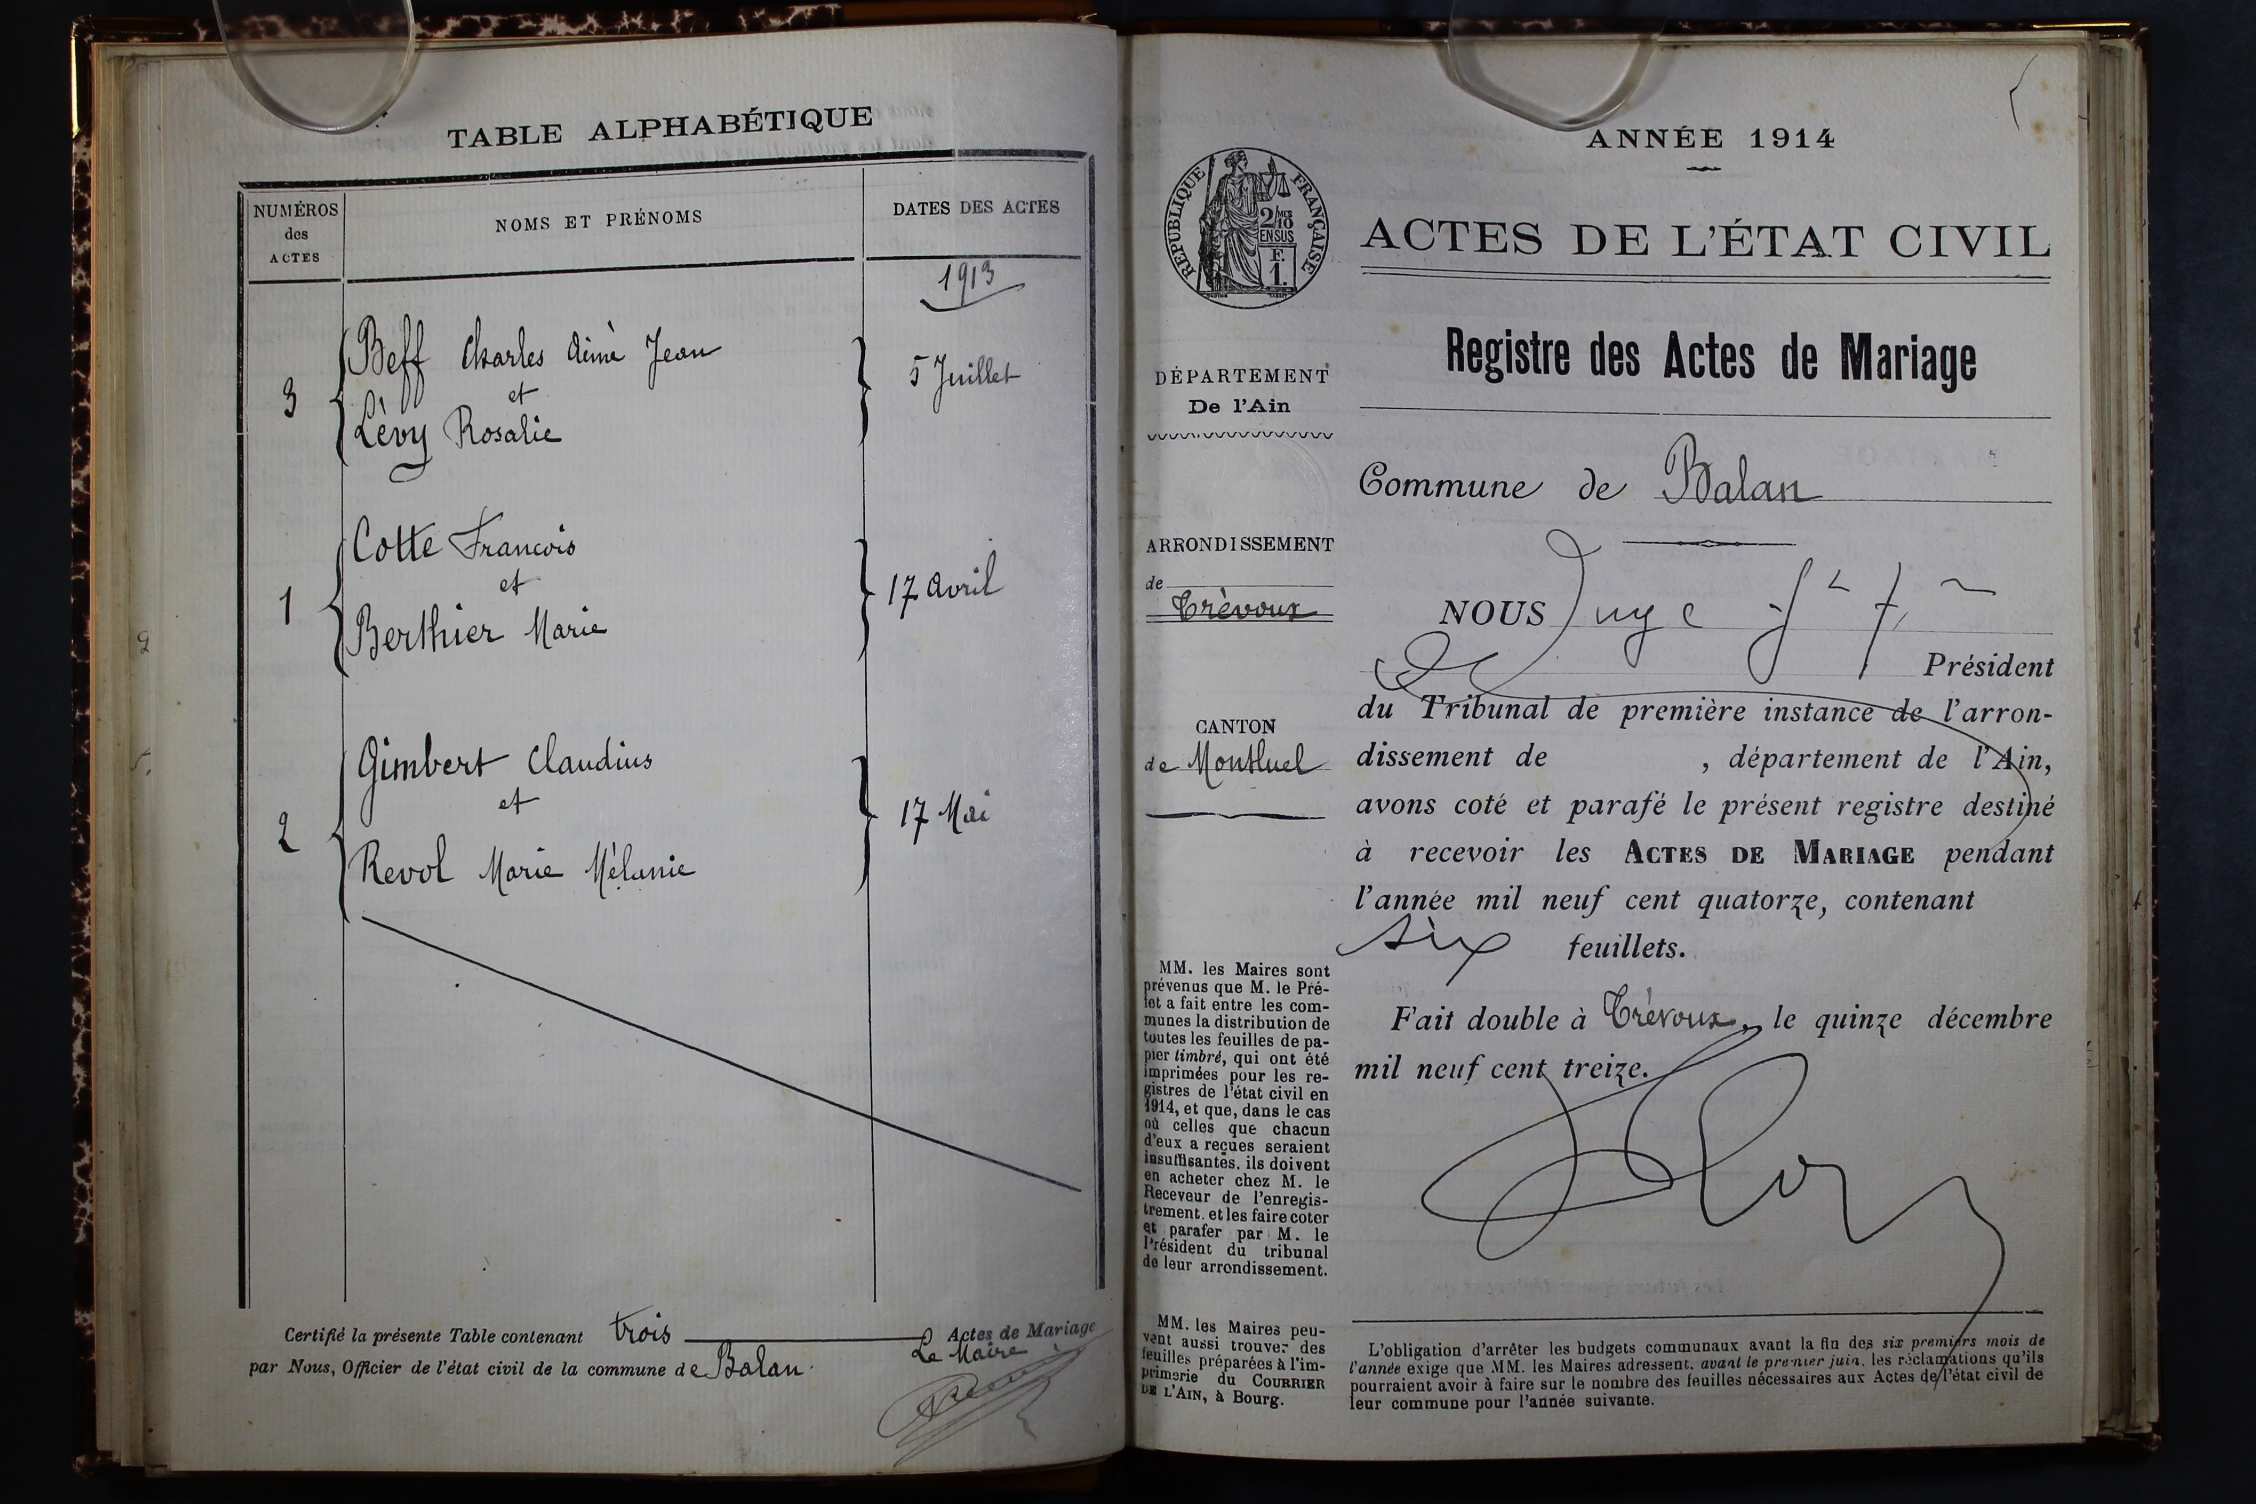 TABLE ALPHABÉTIQUE
NUMÉROS
des
ACTES
NOMS ET PRÉNOMS
DATES DES ACTES
1913
3
Beff Charles Aimè Jean
et
Lèvy Rosalie
5 Juillet
1
Cotte Francois
et
Berthier Marie
17 Avril
2
Gimbert Claudius
et
Revol Marie Mélanie
17 Mai
Certifié la présente Table contenant trois Actes de Mariage
par Nous, Officier de l'état civil de la commune de Balan.
Le Maire
ANNÉE 1914
RÉPUBLIQUE FRANÇAISE
2/10 MES
EN SUS
F.
1.
ACTES DE L'ÉTAT CIVIL
Registre des Actes de Mariage
DÉPARTEMENT
De l'Ain
Commune de Balan
ARRONDISSEMENT
de
Trèvoux
CANTON
de Montluel
NOUS Juge
Président
du Tribunal de première instance de l'arron-
dissement de , département de l'Ain,
avons coté et parafé le présent registre destiné
à recevoir les ACTES DE MARIAGE pendant
l'année mil neuf cent quatorze, contenant
six feuillets.
Fait double à Trévoux, le quinze décembre
mil neuf cent treize.
MM. les Maires sont
prévenus que M. le Pré-
fet a fait entre les com-
munes la distribution de
toutes les feuilles de pa-
pier timbré, qui ont été
imprimées pour les re-
gistres de l'état civil en
1914, et que, dans le cas
où celles que chacun
d'eux a reçues seraient
insuffisantes, ils doivent
en acheter chez M. le
Receveur de l'enregis-
trement, et les faire coter
et parafer par M. le
Président du tribunal
de leur arrondissement.
MM. les Maires peu-
vent aussi trouver des
feuilles préparées à l'im-
primerie du COURRIER
DE L'AIN, à Bourg.
L'obligation d'arrêter les budgets communaux avant la fin des six premiers mois de
l'année exige que MM. les Maires adressent, avant le premier juin, les réclamations qu'ils
pourraient avoir à faire sur le nombre des feuilles nécessaires aux Actes de l'état civil de
leur commune pour l'année suivante.